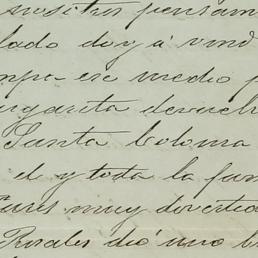 nosotros pensam
lado doy á vmd
mpo ese medio p
rgarita devuelv
Santa Coloma
d y toda la fam
Pares muy divertid
Rosales dió uno b